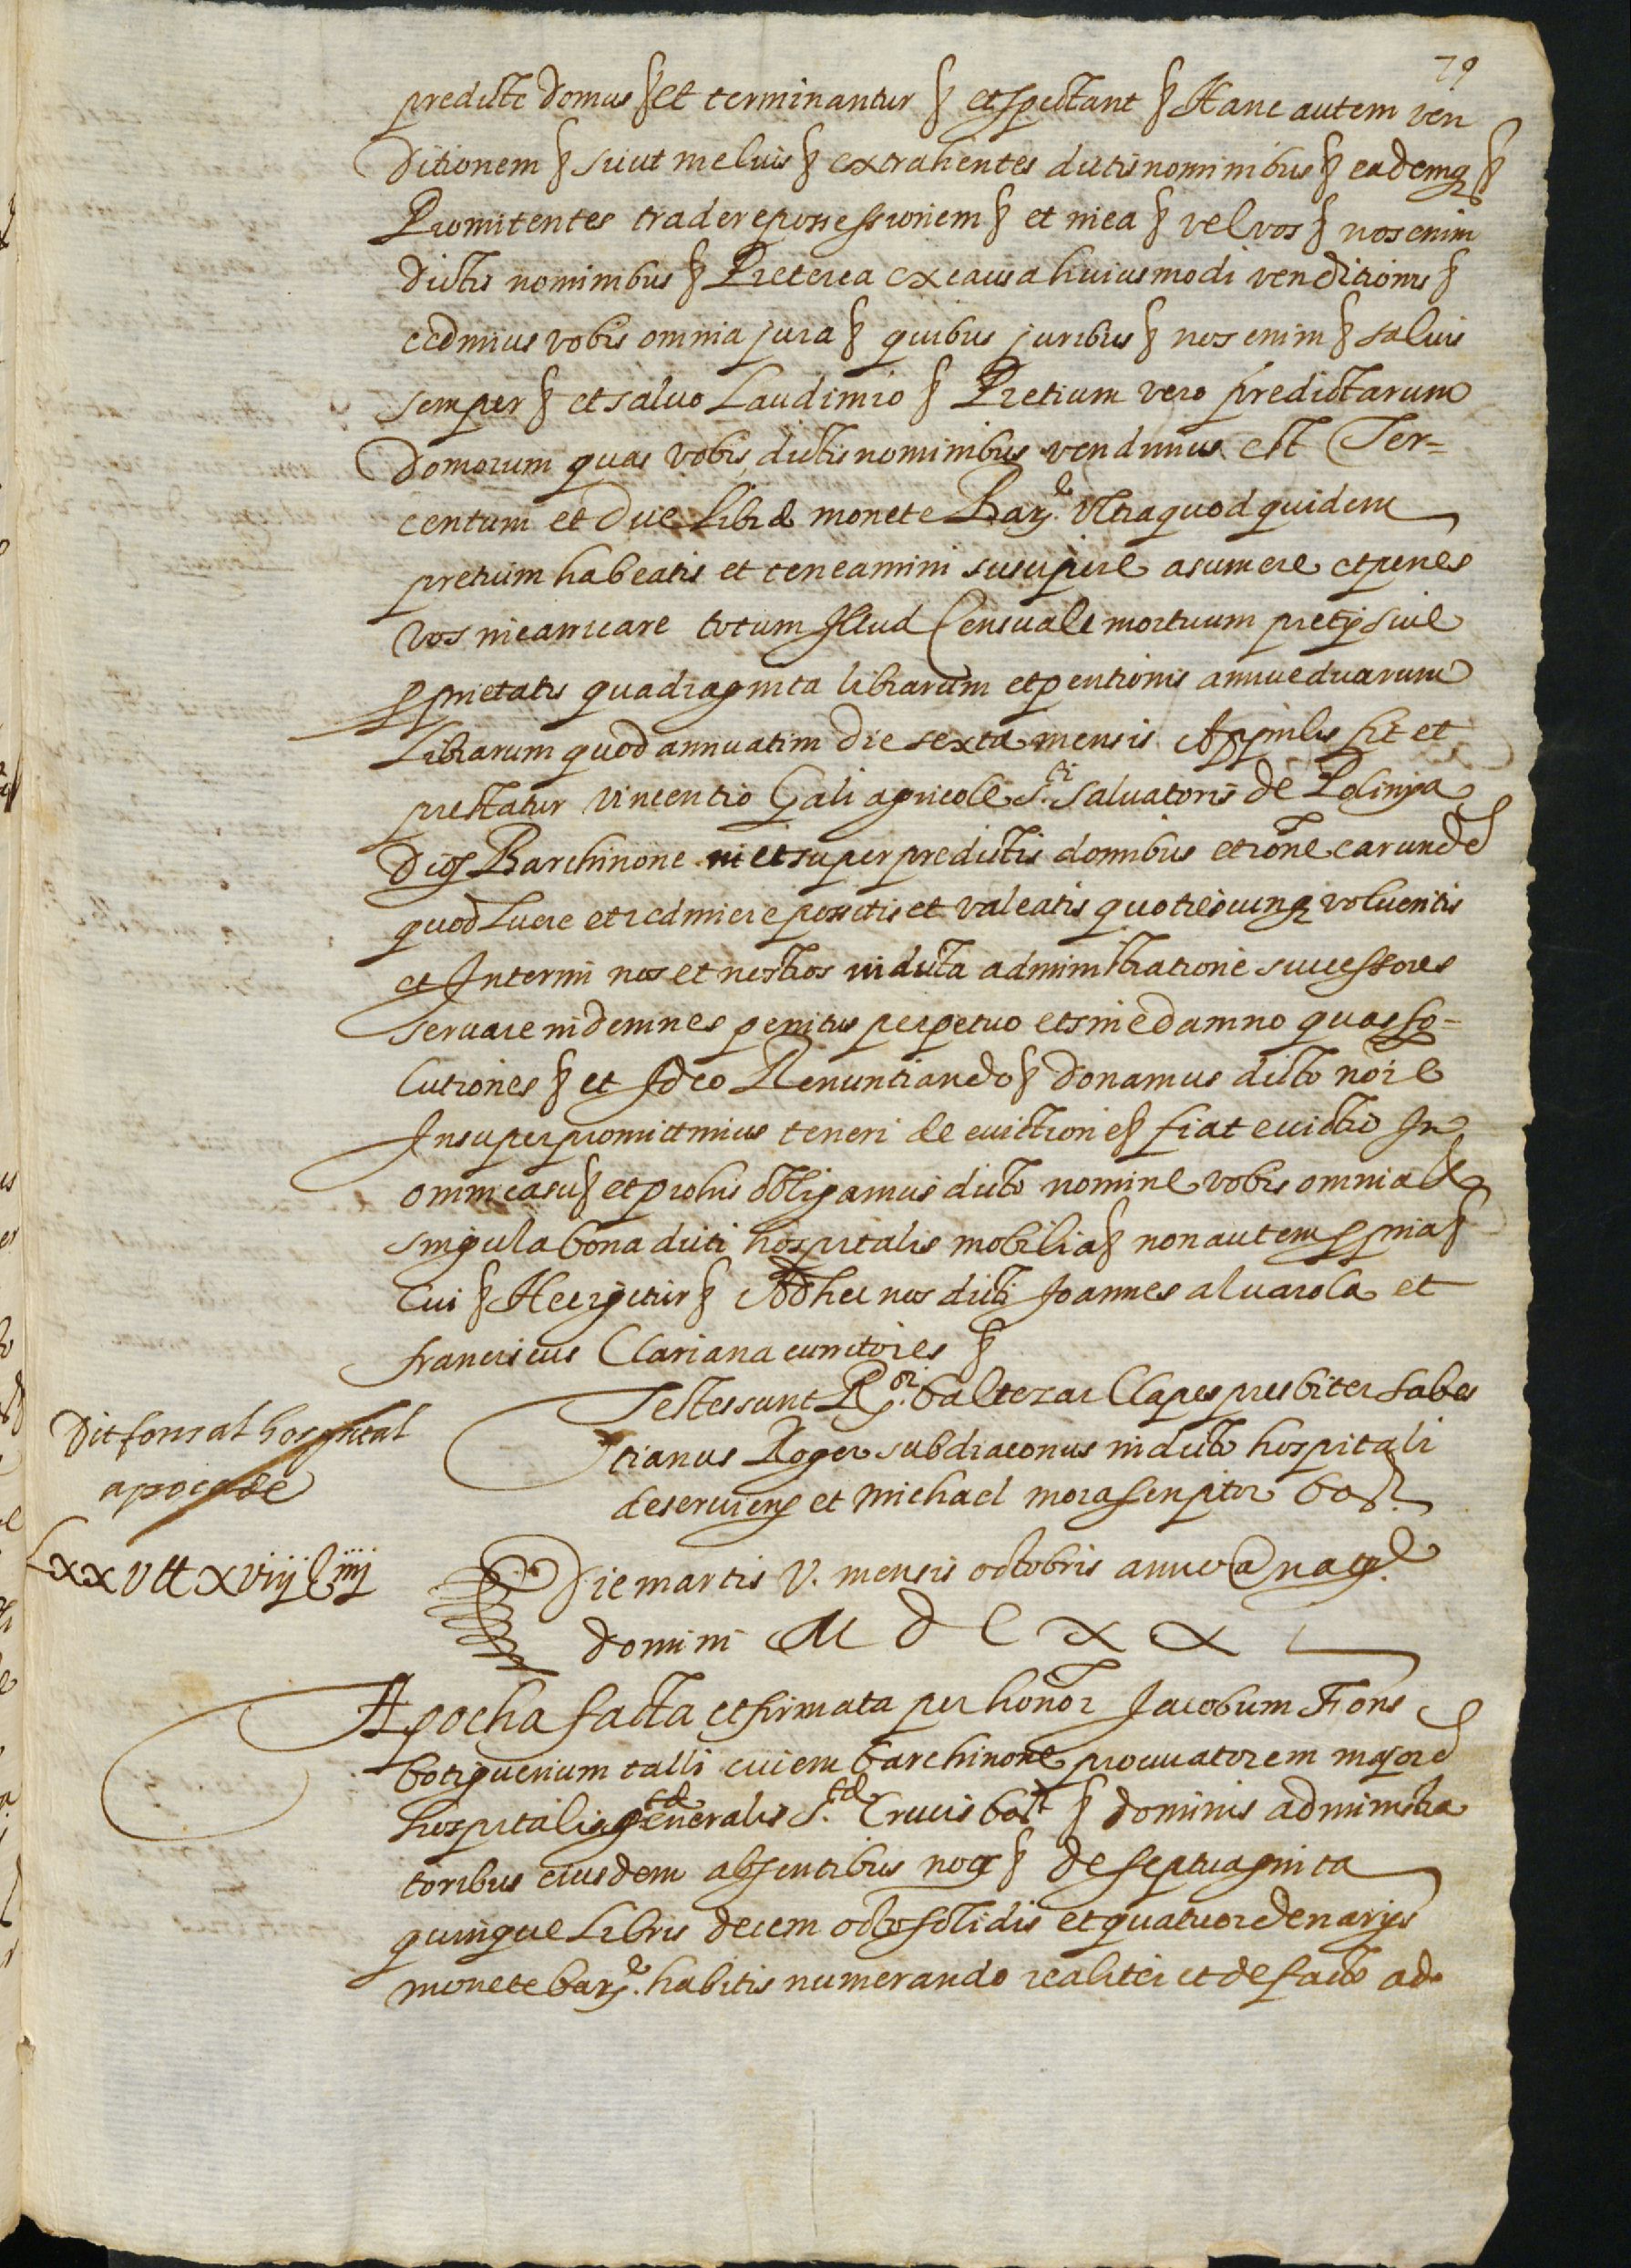 79
predicte domus § et terminantur § et spectant § Hanc autem ven
ditionem § sicut melius § extrahentes dictis nominibus § eademq §
Promitentes tradere possessionem § et in ea § vel vos § nos enim
dictis nominibus § Preterea ex causa huiusmodi venditionis §
cedimus vobis omnia jura § quibus juribus § nos enim § salvis
semper § et salvo Laudimio § Pretium vero predictarum
domorum quas vobis dictis nominibus vendimus est Ter=
centum et due libre monete Barȷ. Ultra quod quidem
pretium habeatis et teneamini suscipere asumere et penes
vos in carricare totum Illud Censuale mortuum pretij sive
pprietatis quadraginta librarum et pentionis annue duarum
Librarum quod annuatim die sexta mensis Apprilis fit et
prestatur Vincentio Gali agricole S.ti Salvatoris de Polinya
dioȷ Barchinone in et super predictis domibus et rone earunde
quod Luere et redimere possitis et valeatis quotiescunq volueritis
et Interim nos et nostros in dicta administratione successores
servare indemnes penitus perpetuo et sine damno quas so=
lutiones § et Ideo Renuntiando § donamus dicto noie
Insuper promittimus teneri de evictione § fiat evictio In
omni casu § et pro his obligamus dicto nomine vobis omnia et
singula bona dicti hospitalis mobilia § non autem ppria §
Cui § Hec igitur § Ad hec nos dicti Joannes alvarola et
franciscus Clariana emtores §
Testes sunt R.or baltezar Clapes presbiter Sabes
tianus Roger subdiaconus in dicto hospitali
deserviens et Michael mora scriptor bar.
Dit fons al hospital
apoca de
Lxxv ll xviij s iiij
Die martis V. mensis octobris anno a nate
domini M d C x x
Apocha facta et firmata per honor Jacobum Fons
botiguerium talli civem barchinone procuratorem majore
hospitalis generalis S.te Crucis bar § dominis administra
toribus eiusdem absentibus nor § de septuaginta
quinque Libris decem octo solidis et quatuor denarijs
monete barȷ. habitis numerando realiter et de facto ad